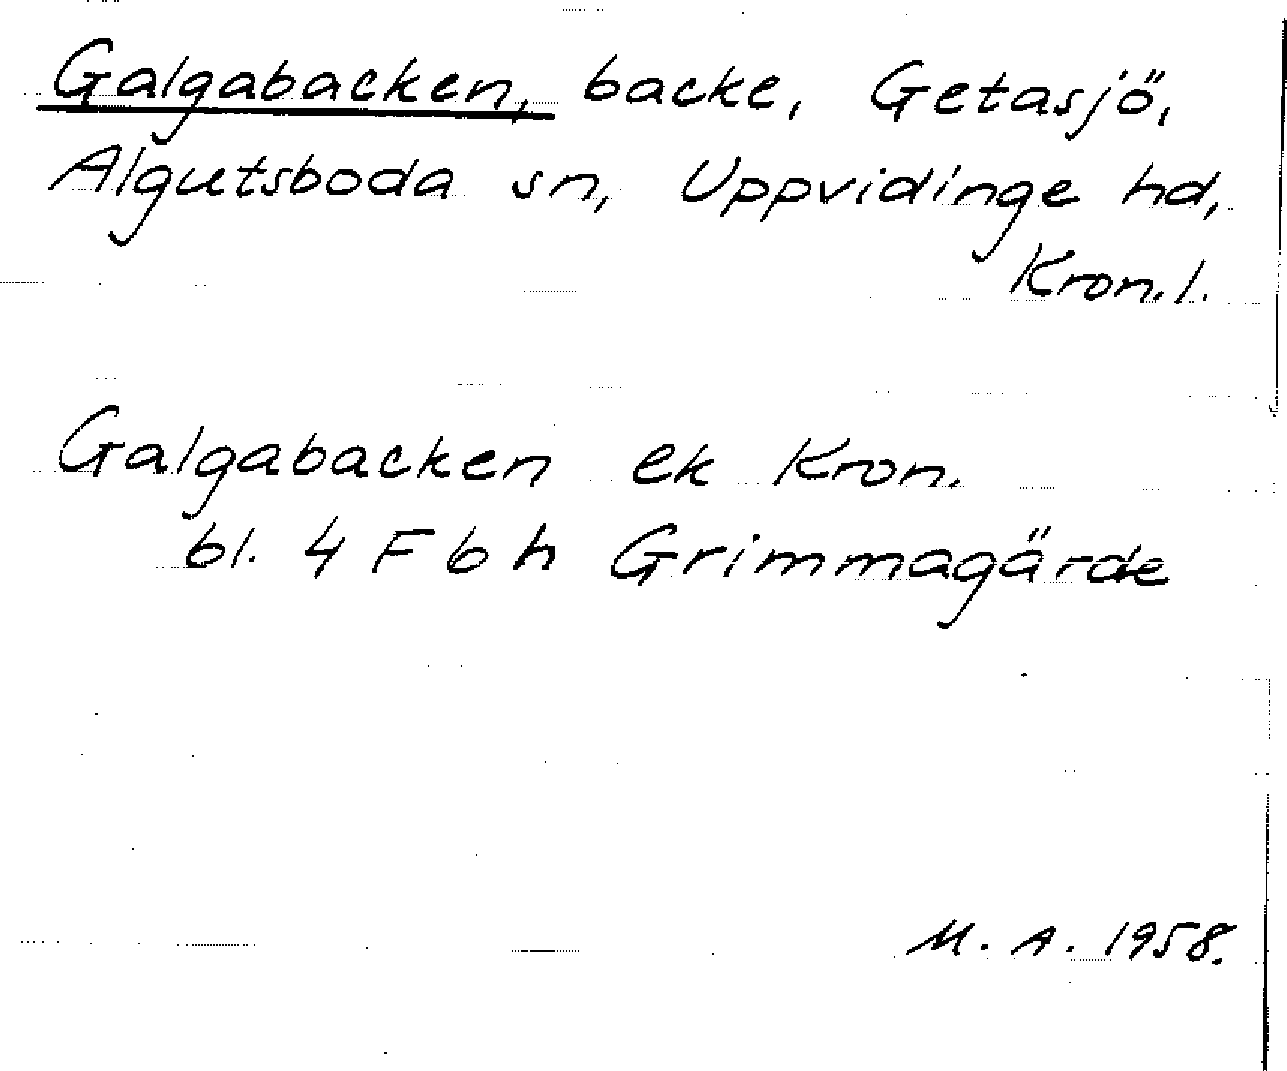 Galgabacken, backe, Getasjö,
Algutsboda sn, Uppvidinge hd,
Kron. l.
Galgabacken ek Kron.
bl. 4 F b h Grimmagärde
M. A. 1958.